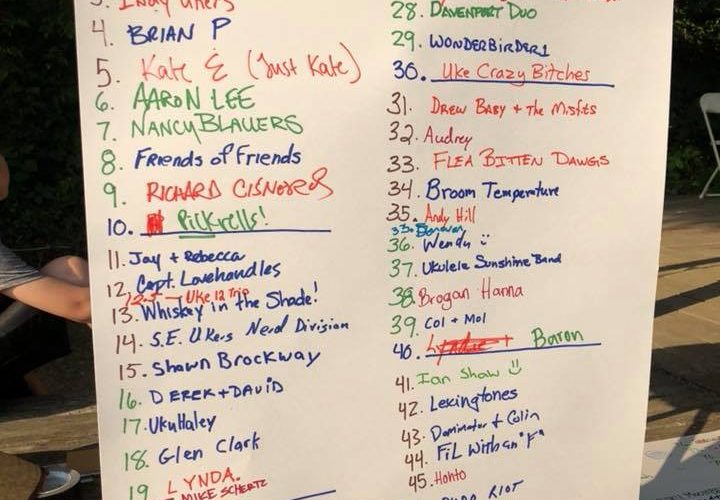 3. Indy Ukers
4. BRIAN P
5. Kate & (Just Kate)
6. AARON LEE
7. NANCY BLAUERS
8. Friends of Friends
9. RICHARD CISNOREOS
10. Pickrells!
11. Jay + Rebecca
12. Capt. Lovehandles
12.5 - Uke 12 Trip
13. Whiskey in the Shade!
14. S.E. Ukers Nerd Division
15. Shawn Brockway
16. DEREK + DAVID
17. UkuHaley
18. Glen Clark
19 LYNDA.
MIKE SCHERTZ
28. DAVENPORT DUO
29. WONDERBIRDER1
30. Uke Crazy Bitches
31. DREW BABY + The Misfits
32. Audrey
33. FLEA BITTEN DAWGS
34. Broom Temperature
35. Andy Hill
35.5 Donavan
36. Wendy
37. Ukulele Sunshine Band
38. Brogan Hanna
39. Col + Mol
40. + Baron
41. Ian Shaw
42. Lexingtones
43. Dominator + Colin
44. FiL With an "F"
45. Honto
RIOT